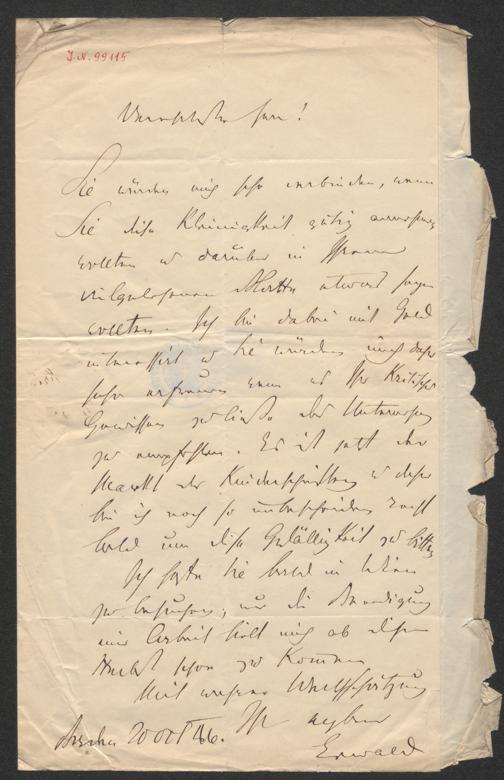 J.N. 99115
Verehrtester Herr!
Sie würden mich sehr verbinden, wenn
Sie diese Kleinigkeit gütig
wollten u darüber in Ihrem
vielgelesenen Blatte etwas sagen
wollten. Ich bin dabei mit Geld
interessirt u Sie würden mich daher
sehr erfreuen wenn es Ihr Kritisches
Gewissen zuließe das
zu empfehlen. Es ist jetzt der
Markt der Kinderschriften u daher
bin ich noch so unbescheiden recht
bald um diese Gefälligkeit zu bitten
Ich hoffte Sie bald in Wien
zu besuchen, nur die Beendigung
einer Arbeit hielt mich ab diesen
Herbst schon zu Kommen
Mit wahrer Werthschätzung
Ihr ergebener
20 Oct 46.